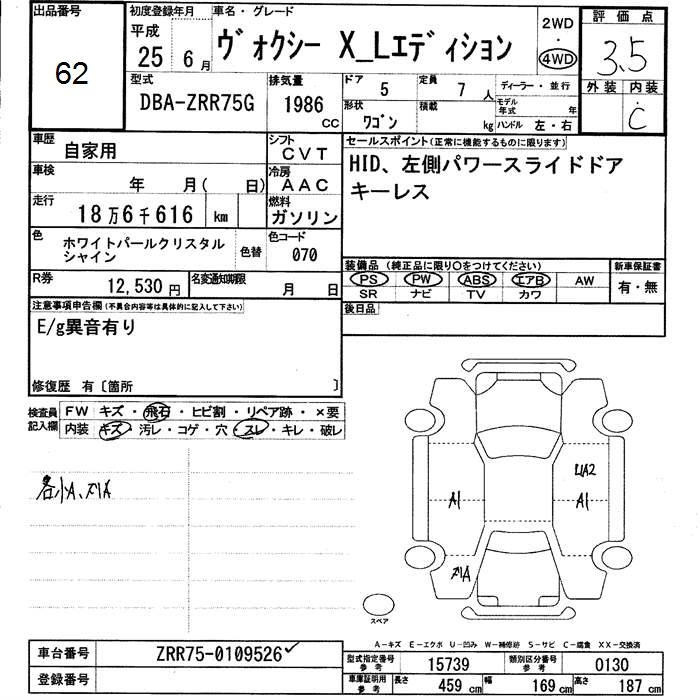 出品番号
62
初度登録年月
平成
25 6 月
車名・グレード
ヴォクシー X_Lエディション
2WD
・
4WD
評価点
3.5
外装 内装
C
型式
DBA-ZRR75G
排気量
1986
CC
ドア
5
定員
7 人
形状
ワゴン
積載
kg
ディーラー・並行
モデル年式
年
ハンドル 左・右
車歴
自家用
シフト
CVT
車検
年 月( 日)
冷房
AAC
走行
18万6千616 km
燃料
ガソリン
色
ホワイトパールクリスタル
シャイン
色替
色コード
070
R券
12,530 円
名変通知期限
月 日
セールスポイント(正常に機能するものに限ります)
HID、左側パワースライドドア
キーレス
装備品(純正品に限り○をつけてください)
PS PW ABS エアB AW
SR ナビ TV カワ
新車保証書
有・無
後日品
注意事項申告欄(不具合内容等は具体的に記入して下さい)
E/g異音有り
修復歴 有〔箇所 〕
検査員
記入欄
FW キズ・飛石・ヒビ割・リペア跡・×要
内装 キズ・汚レ・コゲ・穴・スレ・キレ・破レ
各小A、
A1
A2
A1
スペア
A-キズ E-エクボ U-凹み W-補修跡 S-サビ C-腐食 XX-交換済
車台番号
ZRR75-0109526
登録番号
型式指定番号
参考
15739
類別区分番号
参考
0130
車庫証明用
参考
長さ
459 cm
幅
169 cm
高さ
187 cm